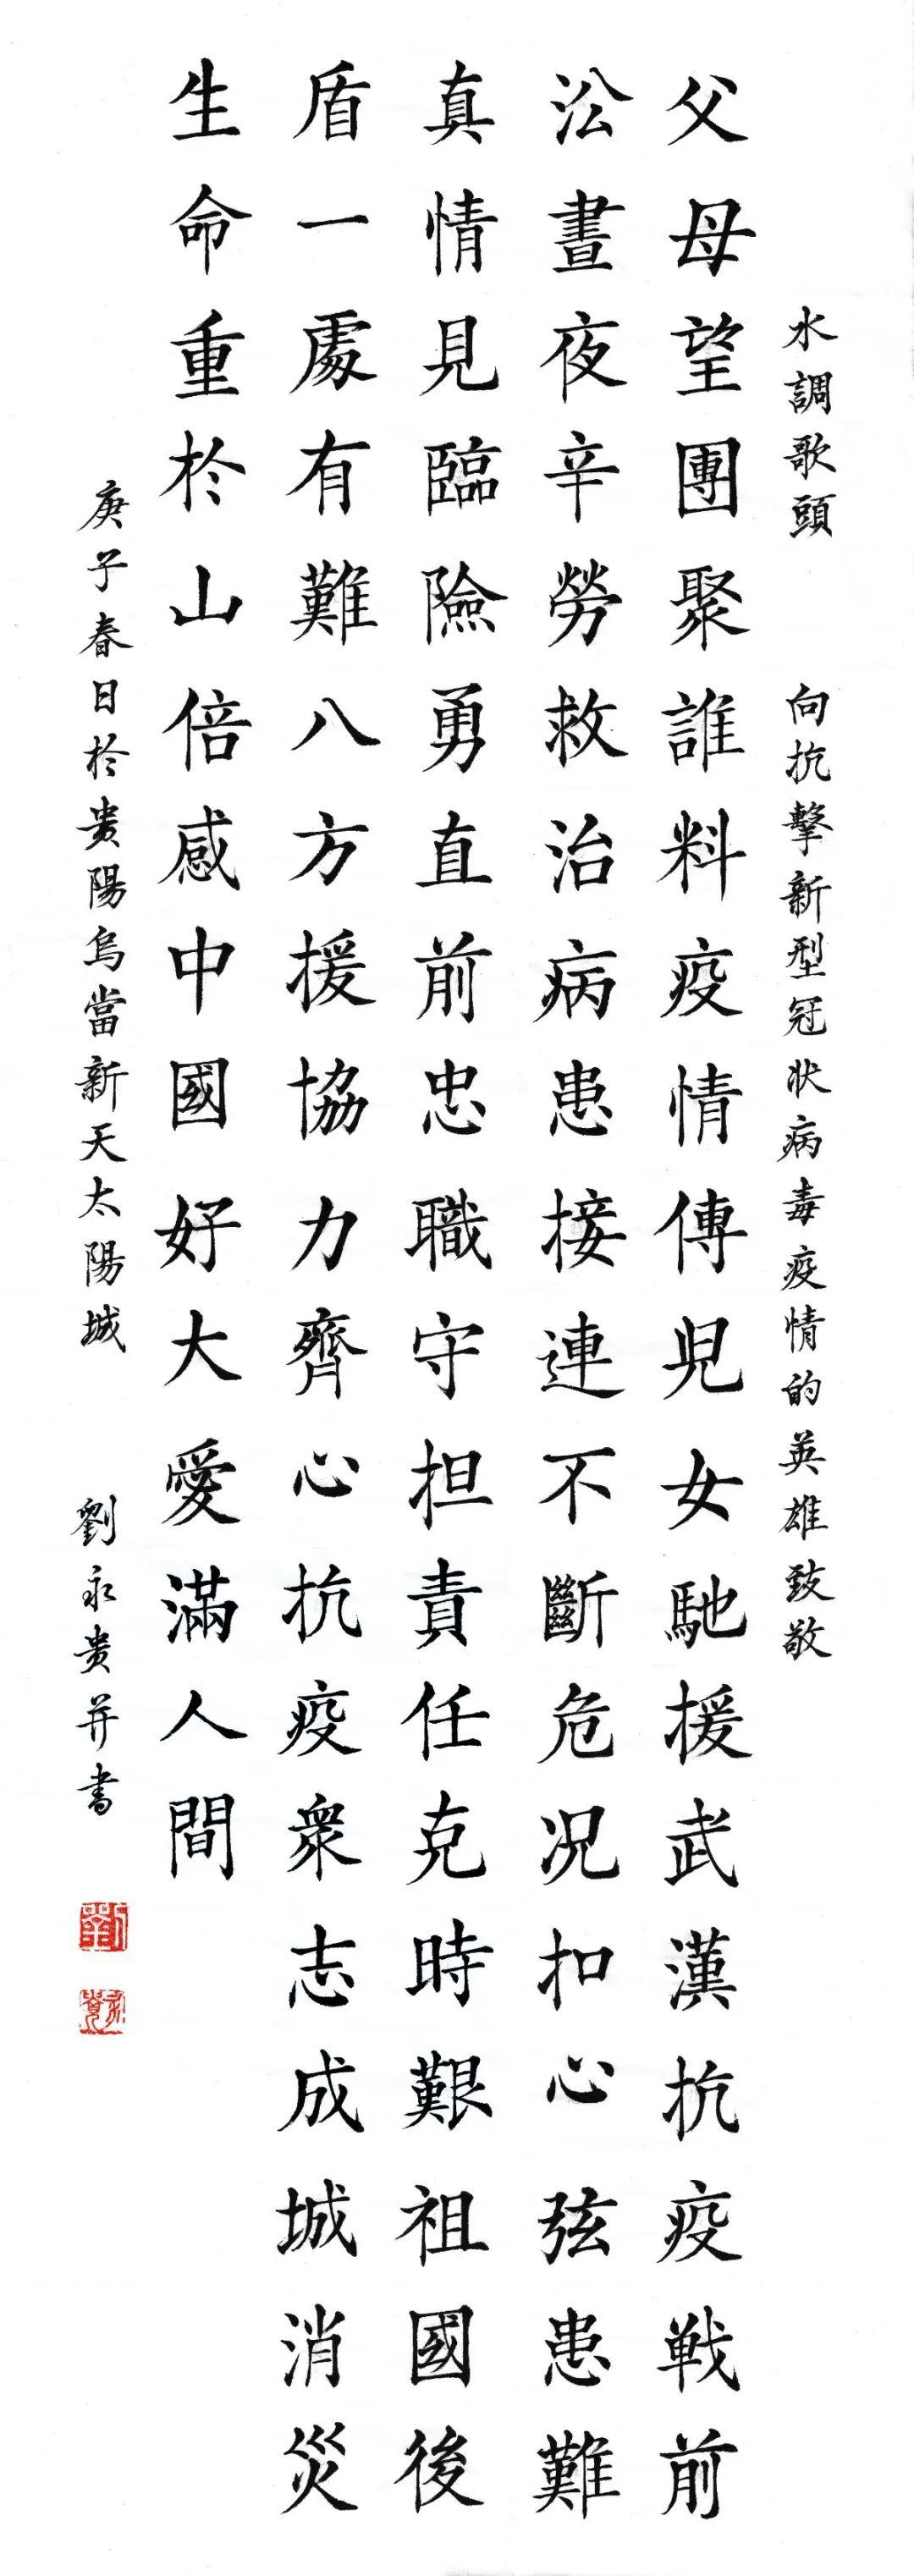 水調歌頭 向抗擊新型冠状病毒疫情的英雄致敬
父母望團聚誰料疫情傳兒女馳援武漢抗疫戰前
沿晝夜辛勞救治病患接連不斷危况扣心弦患難
真情見臨險勇直前忠職守担責任克時艱祖國後
盾一處有難八方援協力齊心抗疫衆志成城消災
生命重於山倍感中國好大愛滿人間
庚子春日於贵陽烏當新天太陽城 劉永贵并書
劉
永貴